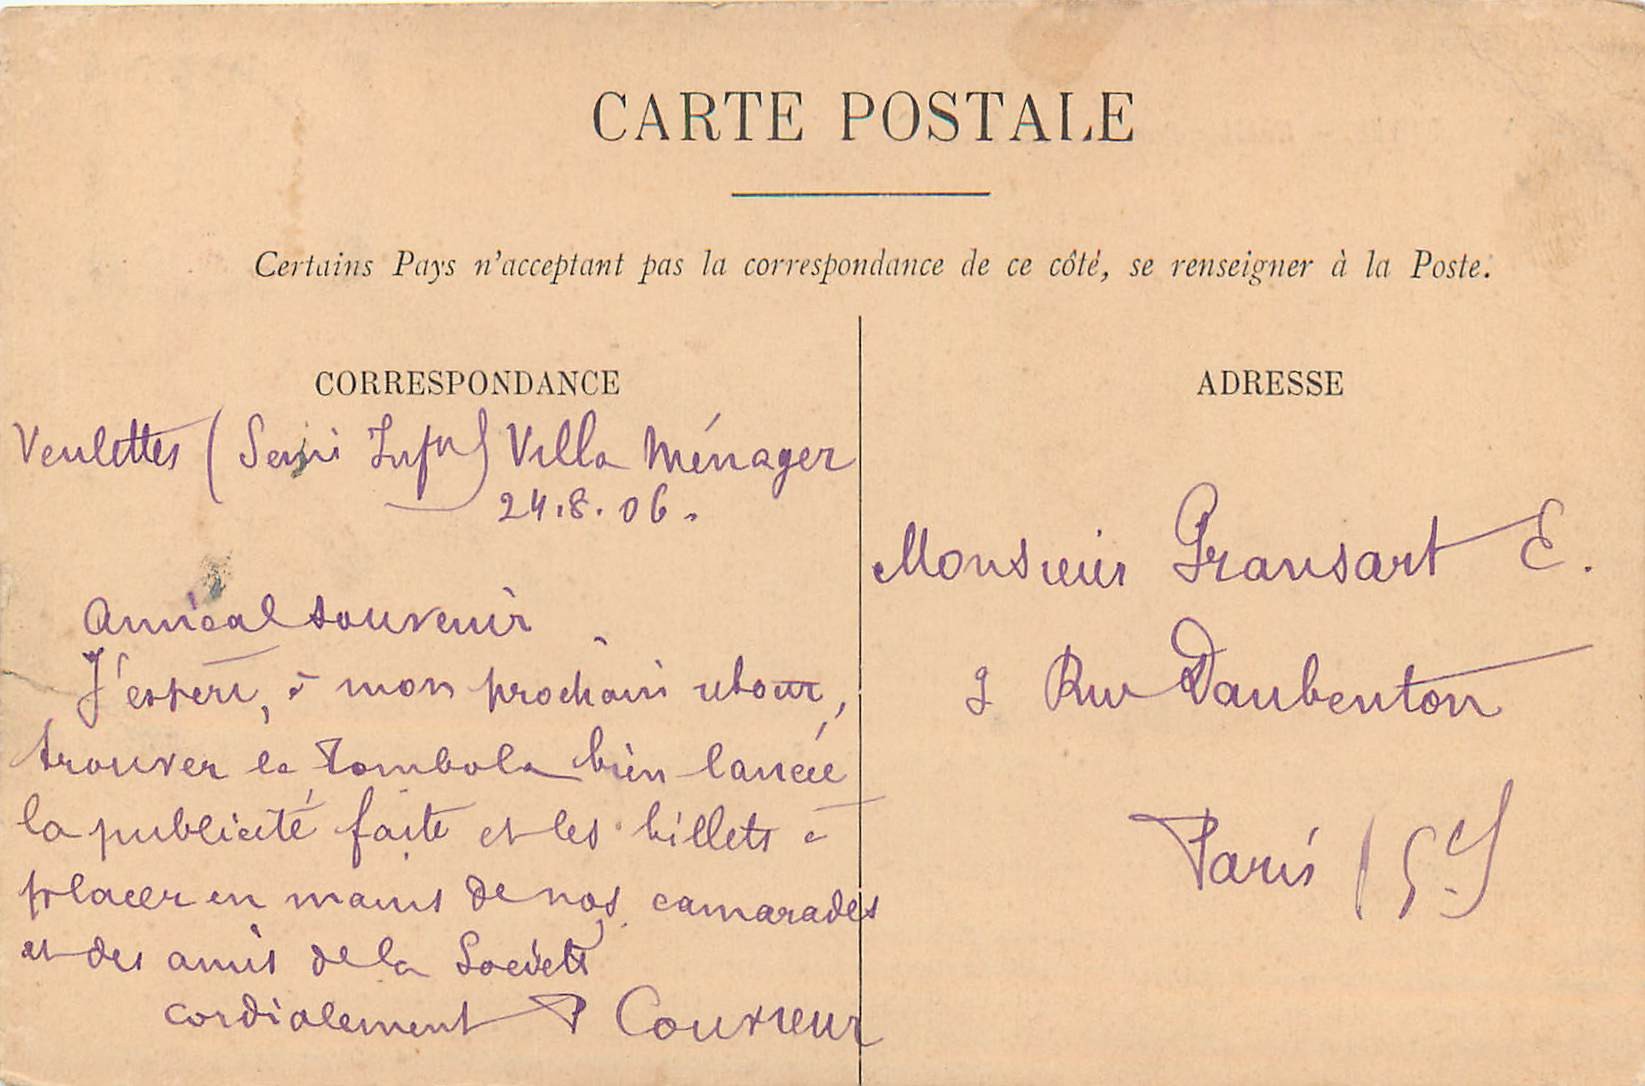 CARTE POSTALE
Certains Pays n'acceptant pas la correspondance de ce côté, se renseigner à la Poste.
CORRESPONDANCE
Veulettes (Seine Infre) Villa Ménager
24.8.06.
Amical souvenir
J'espère, à mon prochain retour,
trouver la Tombola bien lancée
la publicité faite et les billets à
placer en mains de nos camarades
et des amis de la Société
cordialement P Couvreur
ADRESSE
Monsieur Gransart E.
2 Rue Daubenton
Paris